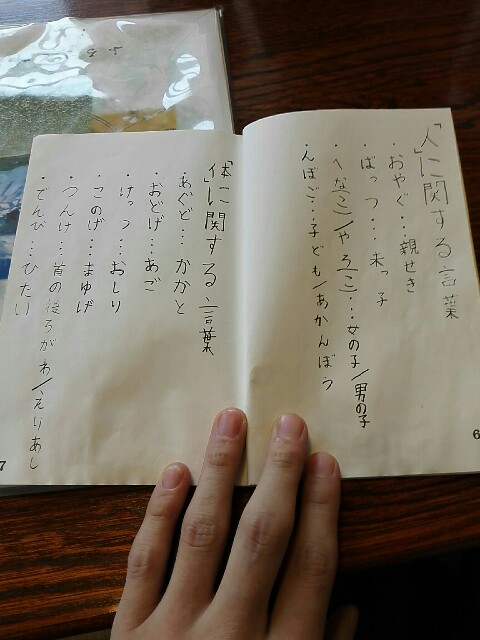 「人」に関する言葉
・おやぐ…親せき
・ばっつ…末っ子
・へなこ/やろこ…女の子/男の子
・んぼこ…子ども/あかんぼう
6
「体」に関する言葉
・あぐど…かかと
・おどげ…あご
・けっつ…おしり
・このげ…まゆげ
・つんけ…首の後ろがわ/えりあし
・でんび…ひたい
7